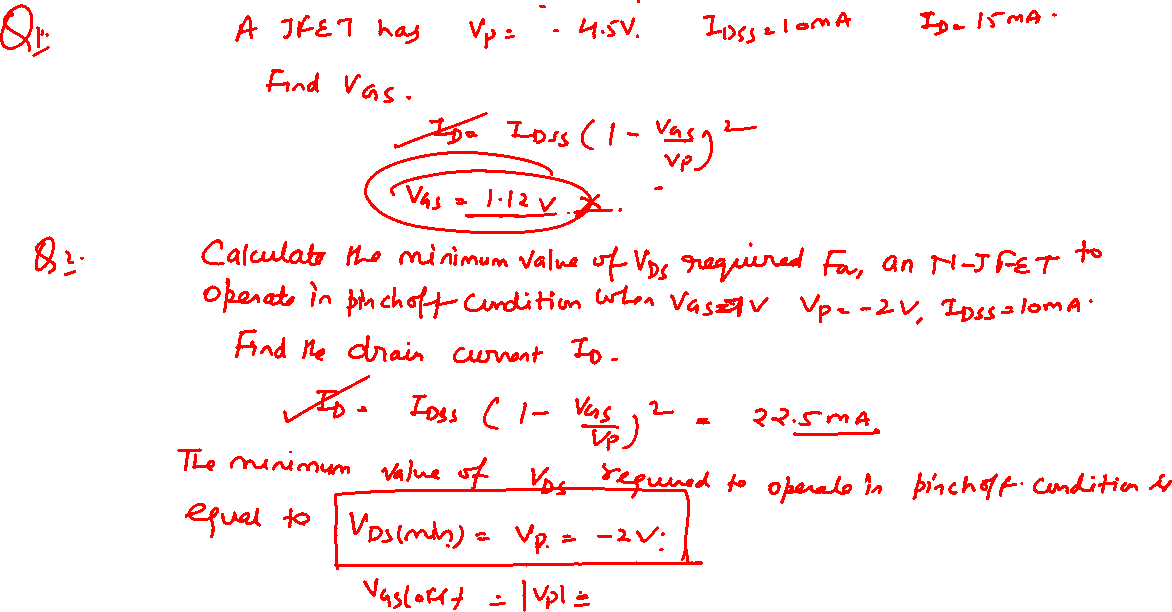 Q1. A JFET has Vp = - 4.5V. IDSS = 10mA ID = 15mA.
Find VGS.
ID = IDSS ( 1 - VGS/VP )^2
VGS = 1.12 V
Q2. Calculate the minimum value of VDS required For an N-JFET to
operate in pinchoff condition when VGS = 1V Vp = -2V, IDSS = 10mA.
Find the drain current ID.
ID = IDSS ( 1 - VGS/VP )^2 = 22.5mA
The minimum value of VDS required to operate in pinchoff condition is
equal to VDS(min) = Vp = -2V.
VGS(off) = |Vp| =